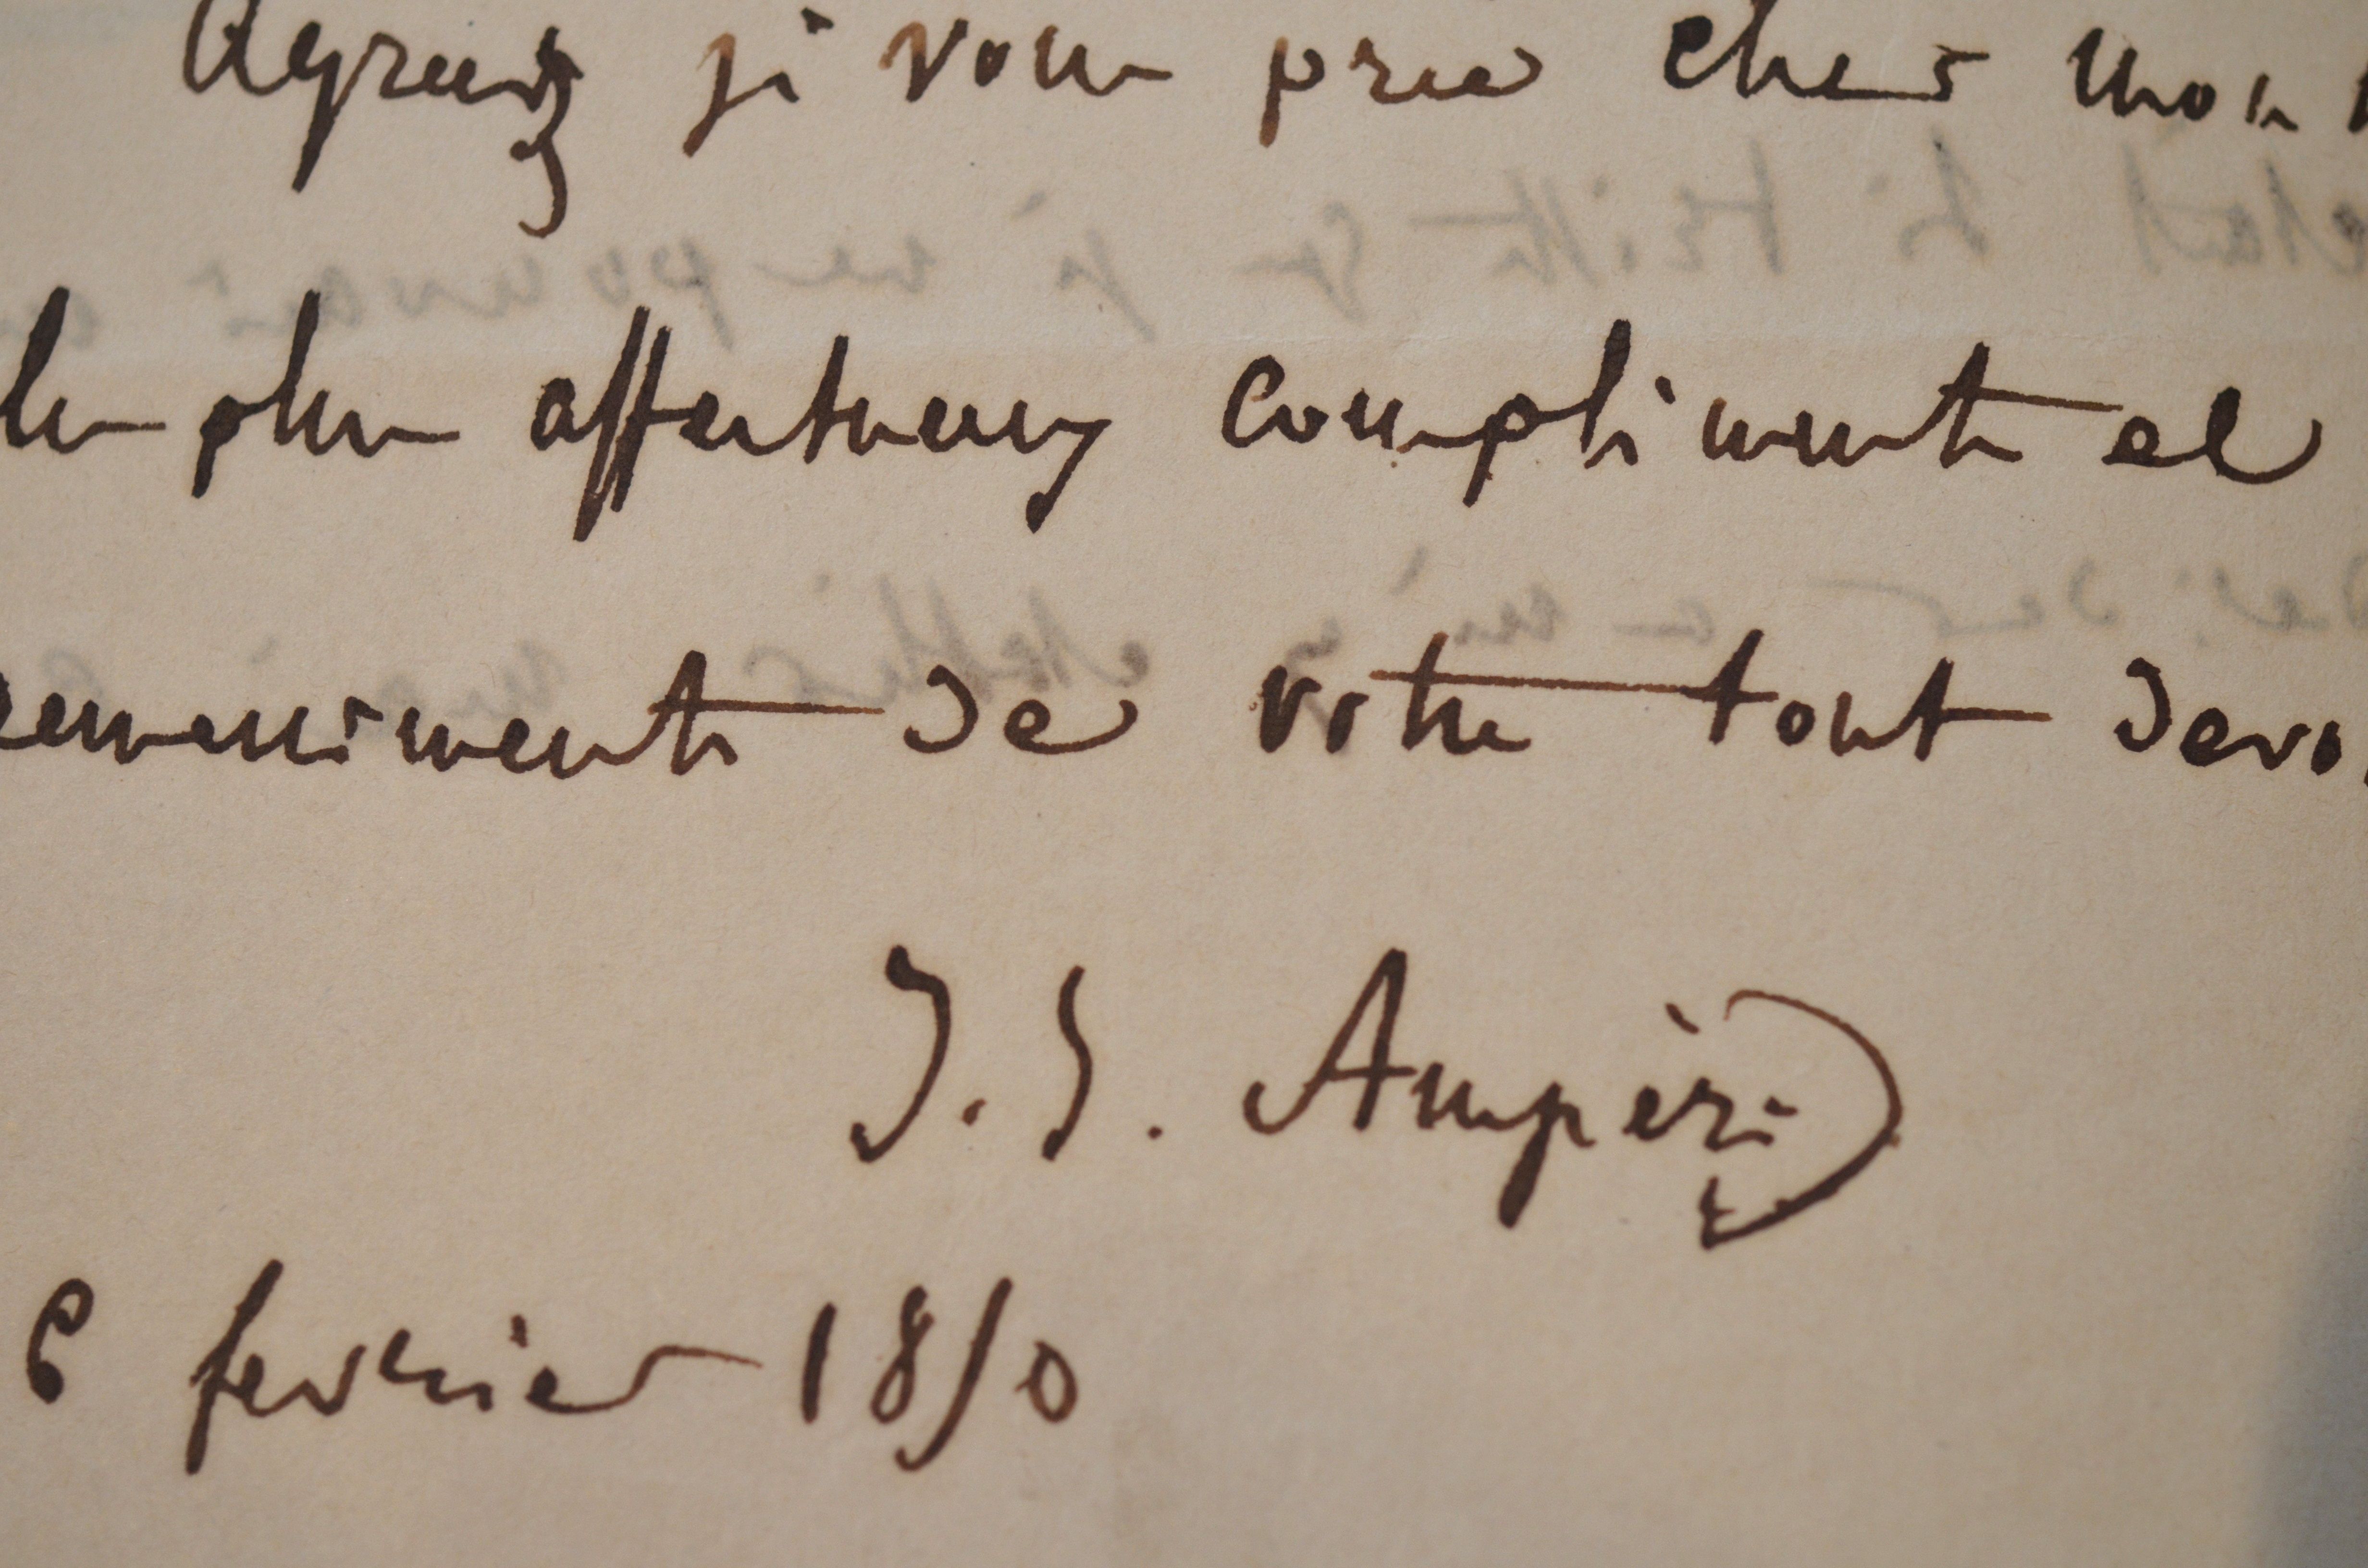 Agréez je vous prie cher mon
les plus affectueux compliments et
remerciments de votre tout devo
J. J. Ampère
6 fevrier 1850